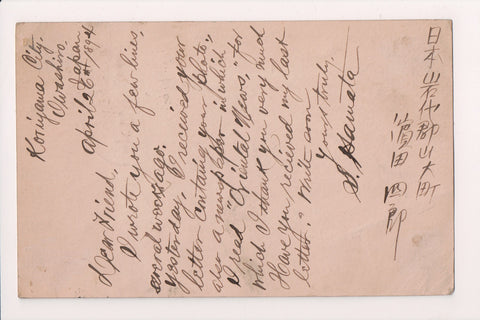 Koriyama City,
Iwashiro,
Japan
April 28th 1894
Dear Friend,
I wrote you a few lines,
several weeks ago.
Yesterday, I received your
letter containg your photo,
also a newspaper in which
I read "Oriental News," for
which I thank you very much
Have you recieved my last
letter? Write soon
Yours truly,
S. Hamata
日本岩代郡山大町
濱田四郎